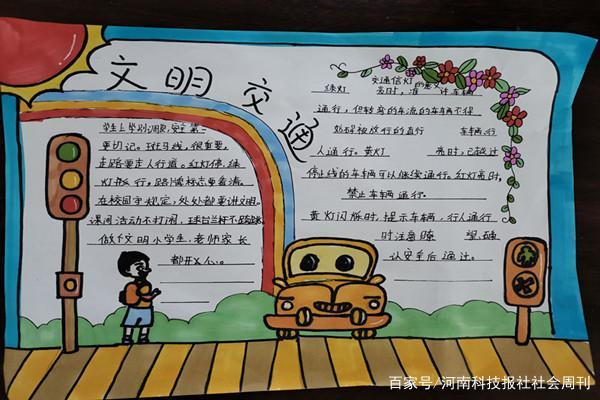 文明交通
学生上学别调皮,安全第一
要切记。斑马线,很重要,
走路要走人行道。红灯停,绿
灯行,路口标志要看清,
在校园守规定,处处都要讲文明。
课间活动不打闹,
做个文明小学生,老师家长
都开心。
交通信灯的意义
绿灯亮时,准许车辆
通行,但转弯的车流的车辆不得
妨碍被放行的直行车辆,行
人通行。黄灯亮时,已越过
停止线的车辆可以继续通行。红灯亮时,
禁止车辆通行。
黄灯闪烁时,提示车辆,行人通行
时注意瞭望,确
认安全后通过。
百家号/河南科技报社社会周刊